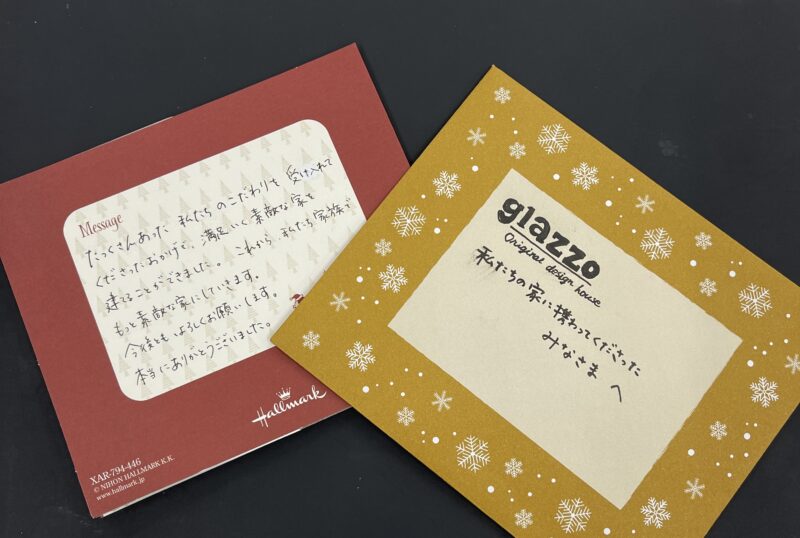 Message
たっくさんあった 私たち のこだわりを 受け入れて
くださったおかげで、満足いく素敵な家を
建てることができました。これから、私たち家族で
もっと素敵な家にしていきます。
今後ともよろしくお願いします。
本当にありがとうございました。
Hallmark
XAR-794-446
© NIHON HALLMARK K.K.
www.hallmark.jp
glazzo
Original design house
私たちの家に携わってくださった
みなさま へ